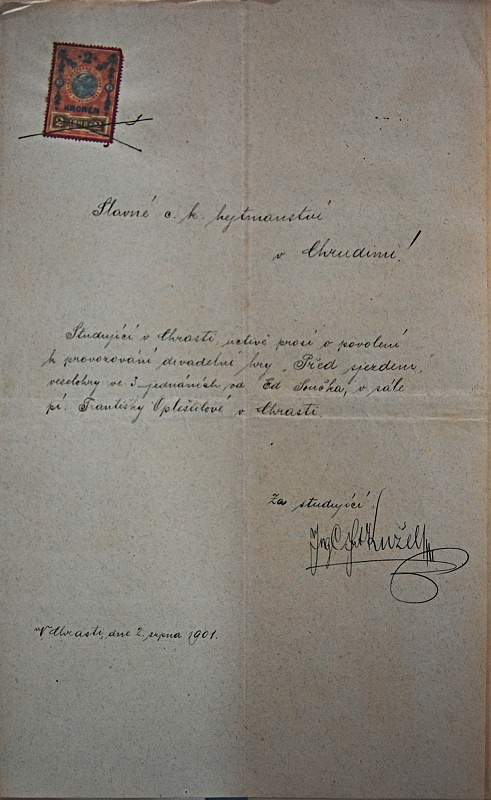 2
KRONEN
Slavné c. k. hejtmanství
v Chrudimi!
Studující v Chrasti uctivě prosí o povolení
k provozování divadelní hry „Před sjezdem,"
veselohry ve 3 jednáních od Ed Součka, v sále
pí. Františky Opleštilové v Chrasti.
Za studující
Kužel
V Chrasti, dne 2. srpna 1901.